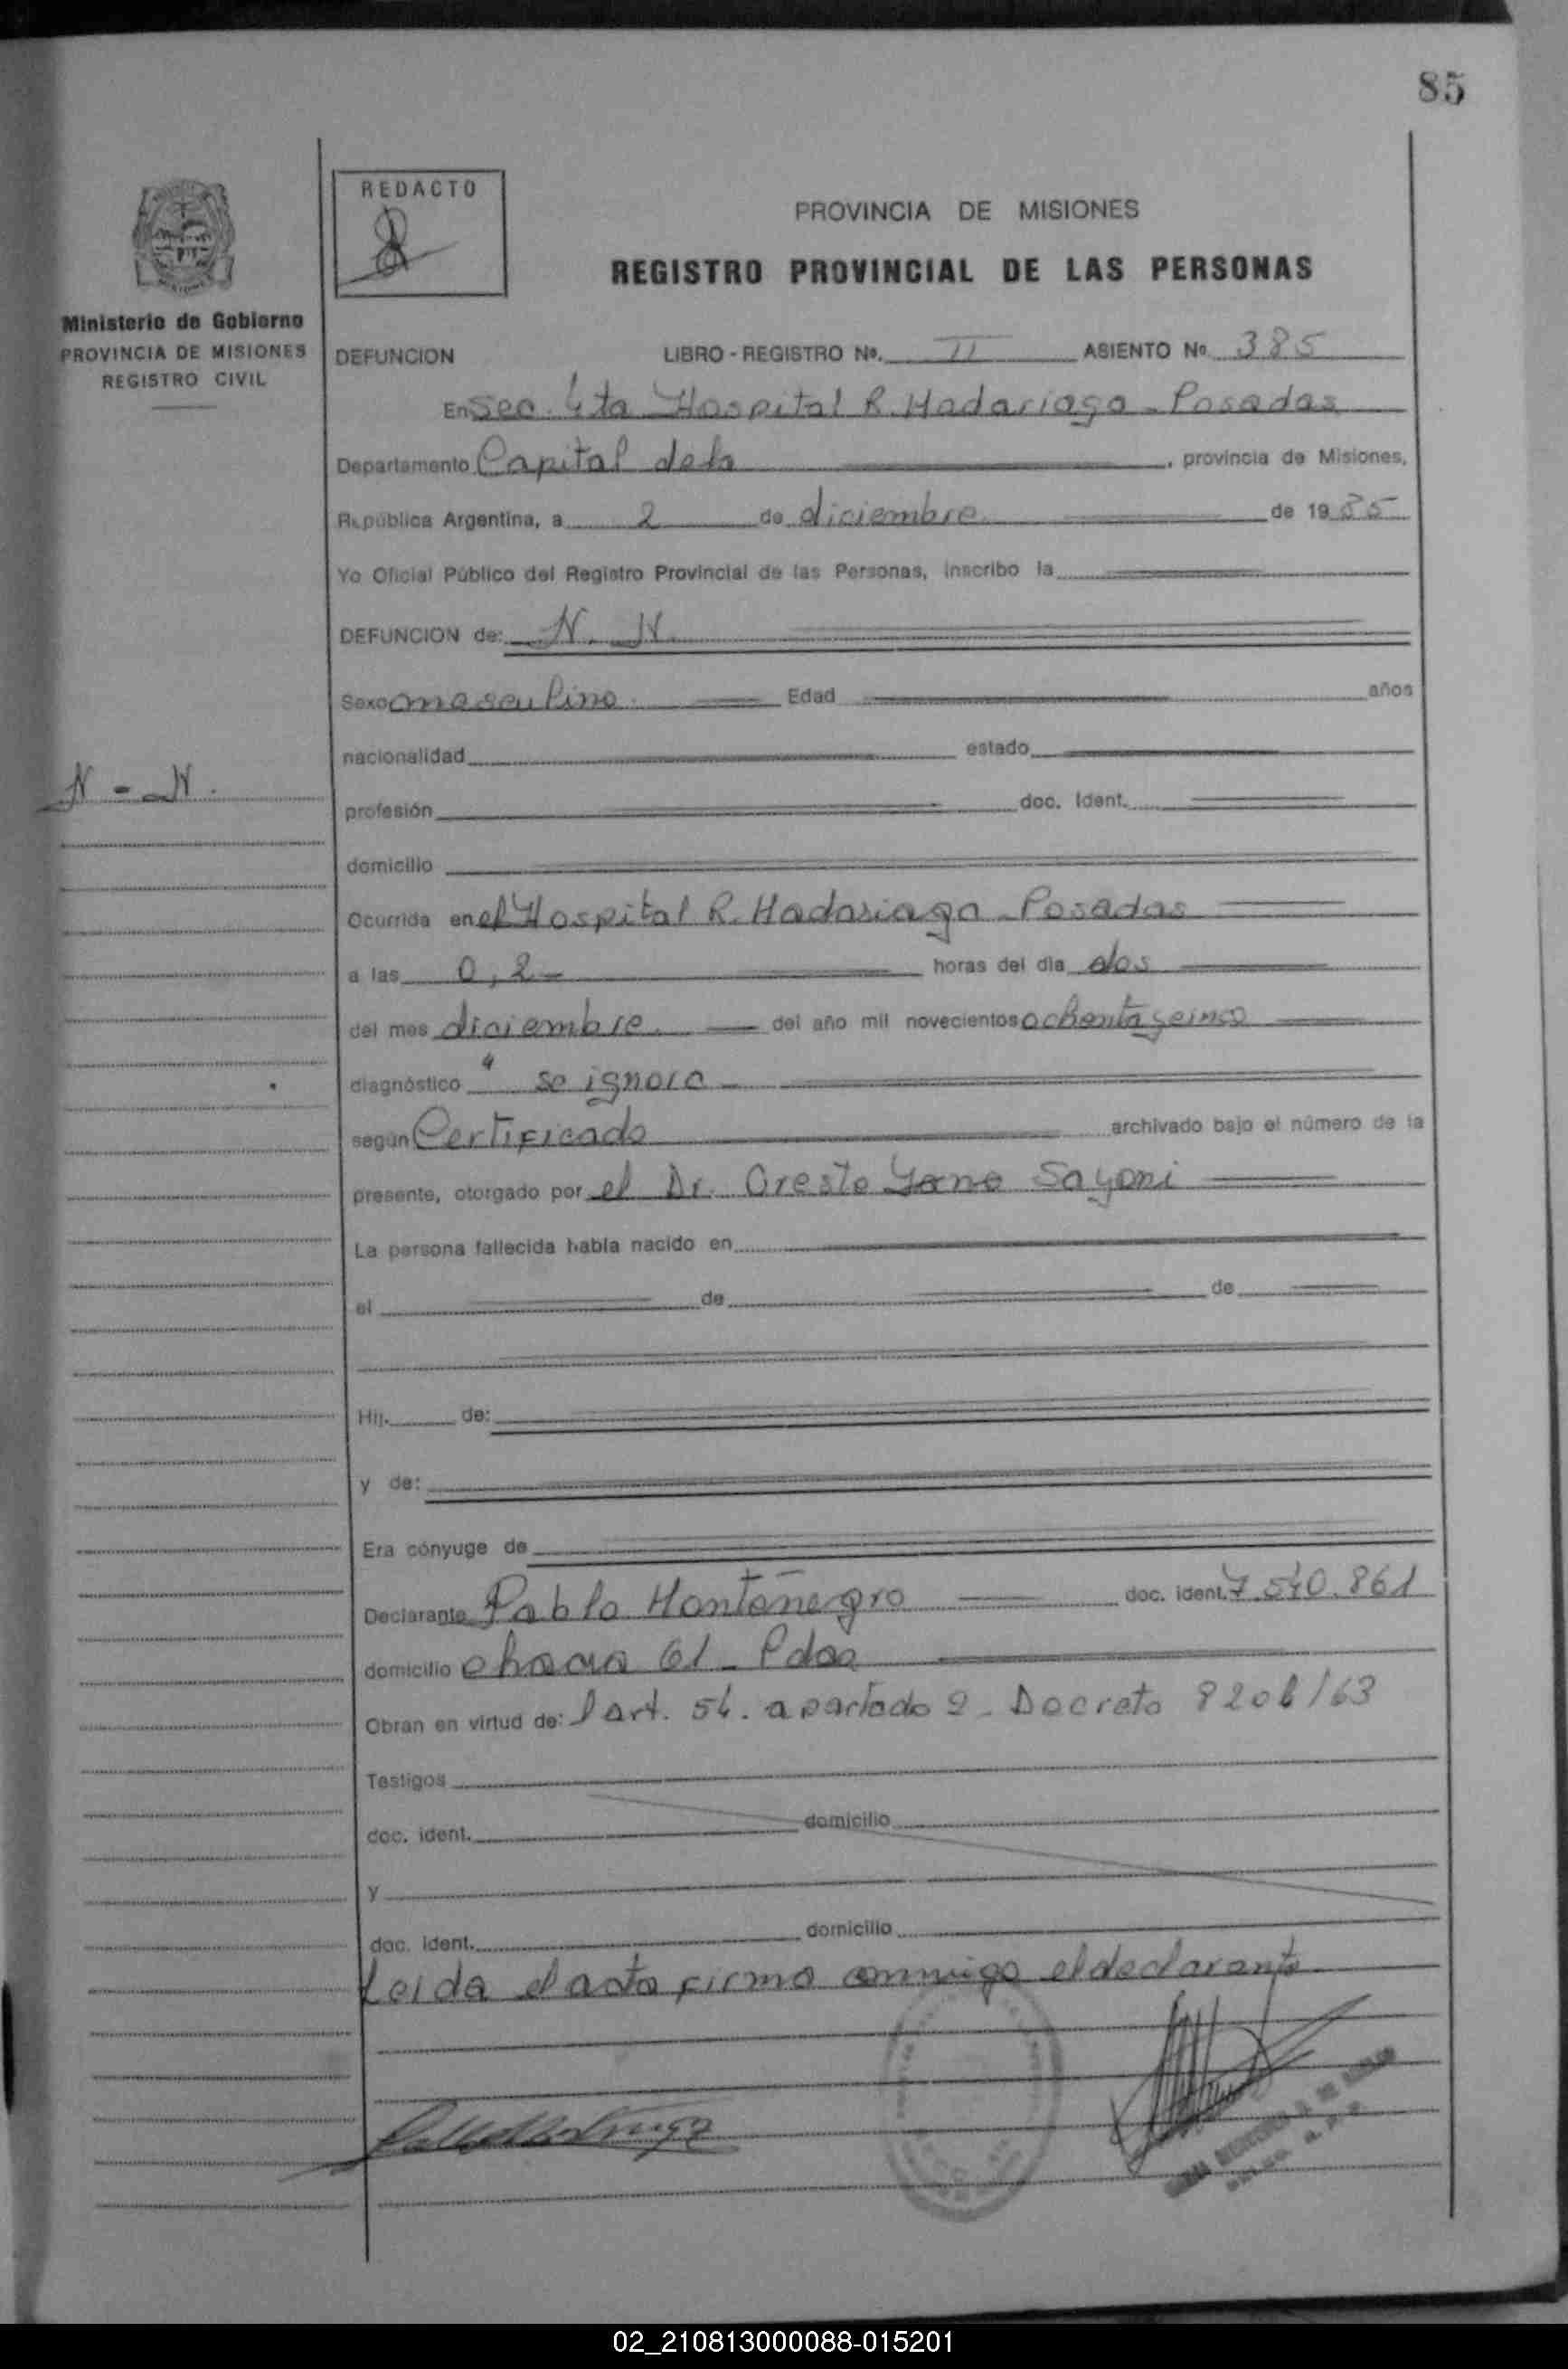 85
REDACTO
PROVINCIA DE MISIONES
REGISTRO PROVINCIAL DE LAS PERSONAS
Ministerio de Gobierno
PROVINCIA DE MISIONES
REGISTRO CIVIL
DEFUNCION LIBRO - REGISTRO Nº. II ASIENTO Nº 385
En Sec. 4ta Hospital R. Madariaga - Posadas
Departamento Capital de la , provincia de Misiones,
República Argentina, a 2 de diciembre de 1985
Yo Oficial Público del Registro Provincial de las Personas, inscribo la
DEFUNCION de: N. N.
Sexo masculino. Edad años
nacionalidad estado
N - N.
profesión doc. Ident.
domicilio
Ocurrida en el Hospital R. Madariaga - Posadas
a las 0,2 horas del día dos
del mes diciembre. del año mil novecientos ochenta y cinco
diagnóstico " se ignora
según Certificado archivado bajo el número de la
presente, otorgado por el Dr. Oreste Sayoni
La persona fallecida había nacido en
el de de
Hij. de:
y de:
Era cónyuge de
Declarante Pablo doc. ident. 7.540.861
domicilio chacra 61 - Pdas
Obran en virtud de: l art. 54. apartado 2 - Decreto 8206/63
Testigos
doc. ident. domicilio
y
doc. ident. domicilio
Leida el acta firma conmigo el declarante
02_210813000088-015201